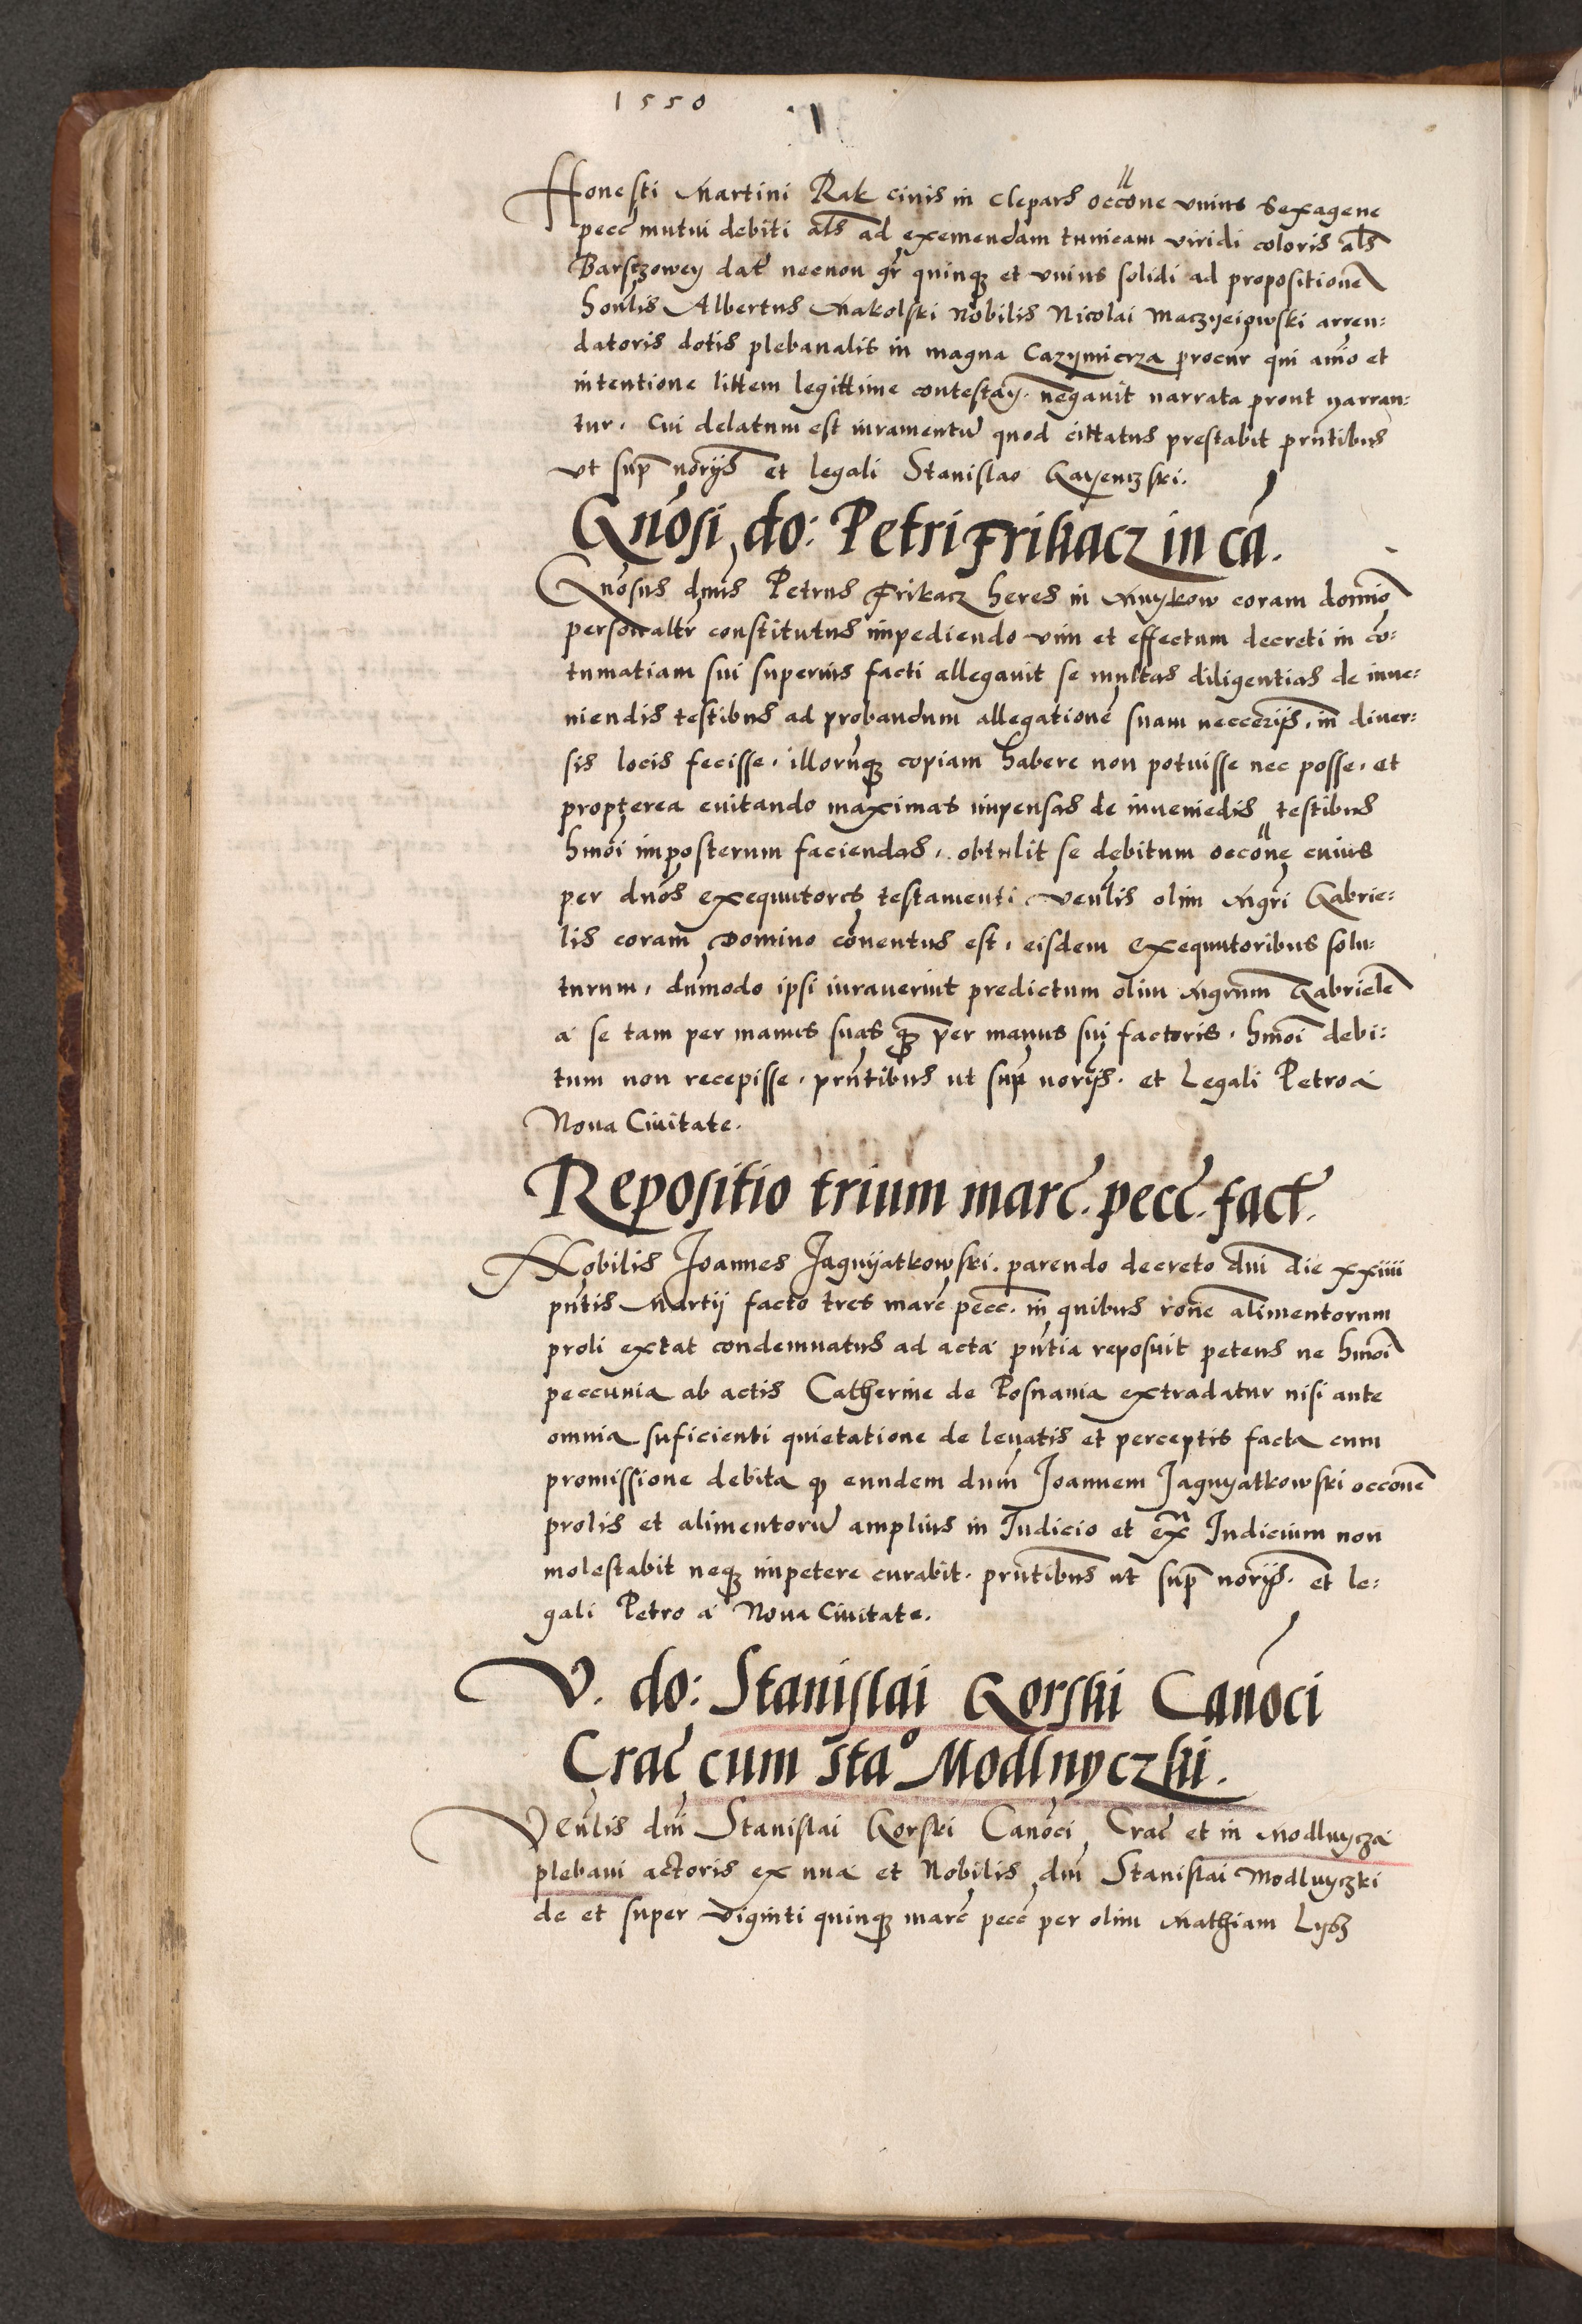 1550
Honesti Martini Rak civis in Clepars occone unius sexagene
pecc mutui debiti als ad exemendam tunicam viridi coloris als
Barszowey dat necnon gr quinq et unius solidi ad propositionē
honlis Albertus Makolski Nobilis Nicolai Maczyeiowski arren:
datoris dotis plebanalis in magna Cazymierza procur qui aīo et
intentione littem legittime contestan. negauit narrata prout narran:
tur. Cui delatum est iuramentū quod cittatus prestabit prntibus
ut sup norijs et legali Stanislao
Gnōsi do: Petri Frikacz in cā.
Gnōsus dnūs Petrus Frikacz heres in Mnykow coram domīo
personaltr constitutus impediendo vim et effectum decreti in cō:
tumatiam sui superius facti allegauit se multas diligentias de inue:
niendis testibus ad probandum allegationē suam neccerijs. in diuer:
sis locis fecisse. illorūq copiam habere non potuisse nec posse. et
propterea euitando maximas impensas de inueniēdis testibus
hmōi imposterum faciendas. obtulit se debitum occone cuius
per dnōs exequutores testamenti venlis olim Mgri Gabrie:
lis coram Domino cōuentus est. eisdem exequutoribus solu:
turum. dūmodo ipsi iurauerint predictum olim Mgrum Gabrielē
a se tam per manus suas q per manus sui factoris. hmōi debi:
tum non recepisse. prntibus ut sup norijs. et Legali Petro a
Noua Ciuitate.
Repositio trium marc. pecc. fact.
Nobilis Joannes Jagnyatkowski. parendo decreto dni die xxiiii
pntis Martij facto tres marc pecc. in quibus rone alimentorum
proli extat condemnatus ad acta pntia reposuit petens ne hmōi
peccunia ab actis Catherine de Posnania extradatur nisi ante
omnia suficienti quietatione de leuatis et perceptis facta cum
promissione debita q eundem dnm Joannem Jagnyatkowski occone
prolis et alimentorū amplius in Judicio et ex Judicium non
molestabit neq impetere curabit. prntibus ut sup norijs. et le:
gali Petro a Noua Ciuitate.
V. do: Stanislai Gorski Canōci
Crac cum Stao Modlnyczki.
Venlis dni Stanislai Gorski Canōci Crac et in Modlnycza
plebani actoris ex una et Nobilis dni Stanislai Modlnyczki
de et super viginti quinq marc pecc per olim Mathiam Lysz